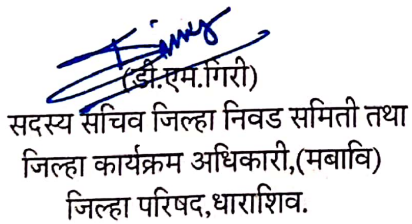 (डी.एम.गिरी)
सदस्य सचिव जिल्हा निवड समिती तथा
जिल्हा कार्यक्रम अधिकारी,(मबावि)
जिल्हा परिषद,धाराशिव.